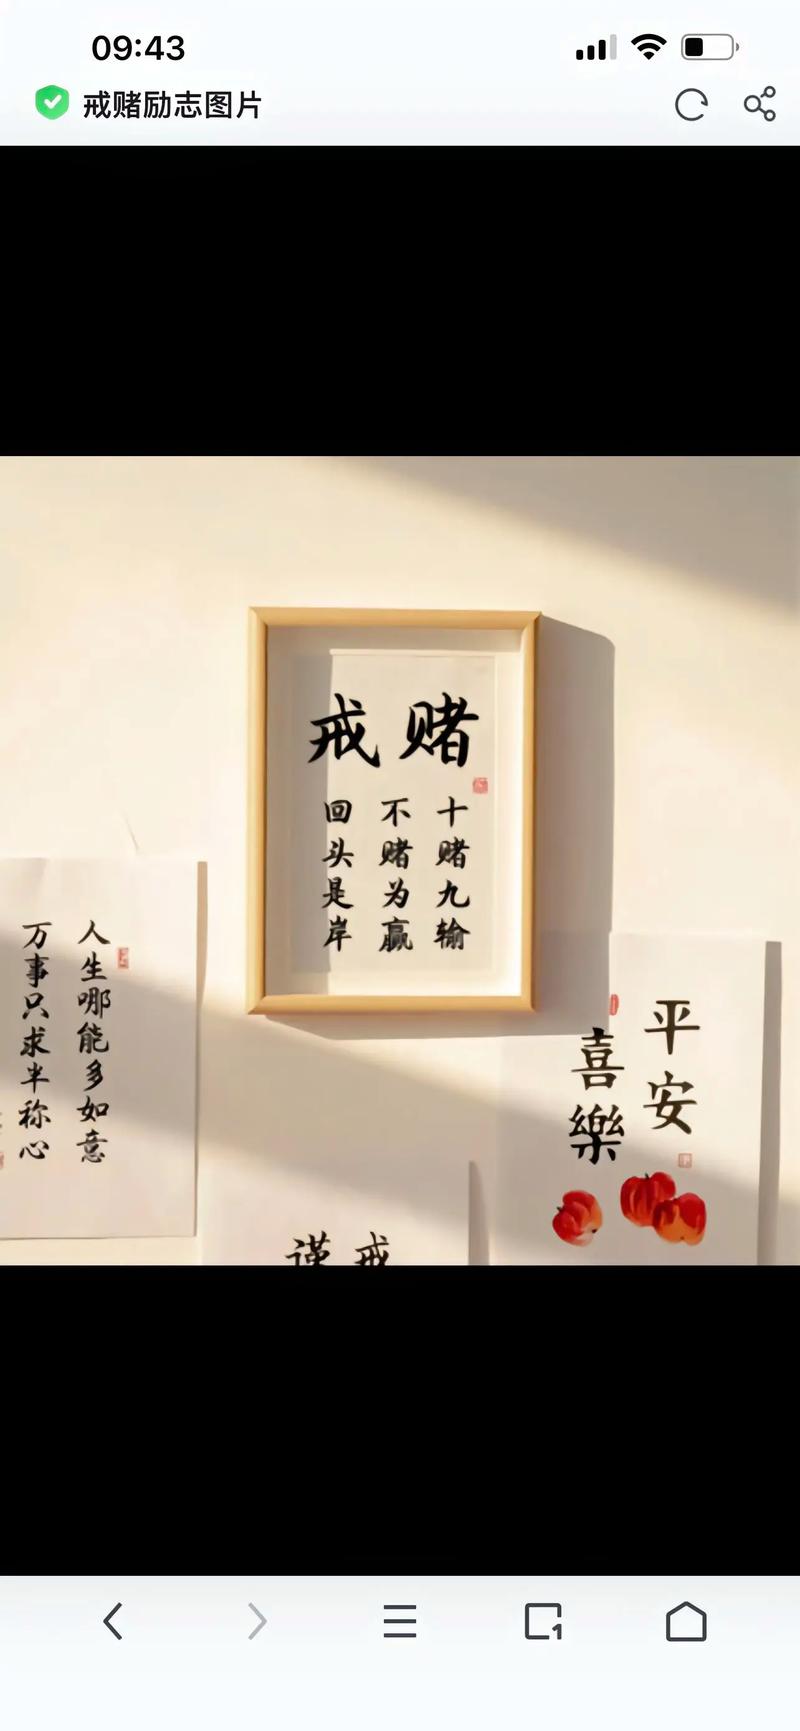 09:43
戒赌励志图片
戒赌
十赌九输
不赌为赢
回头是岸
人生哪能多如意
万事只求半称心
平安
喜樂
谨戒
1